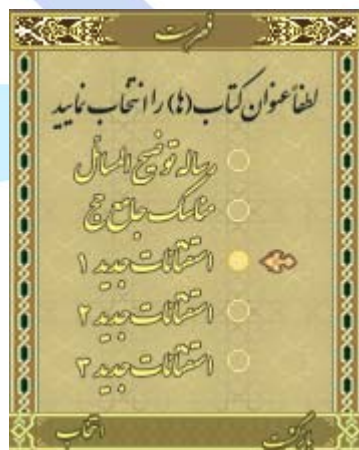 فهرست
لطفاً عنوان کتاب (ها) را انتخاب نمایید
رساله توضیح المسائل
مناسک جامع حج
استفتائات جدید ۱
استفتائات جدید ۲
استفتائات جدید ۳
انتخاب بازگشت